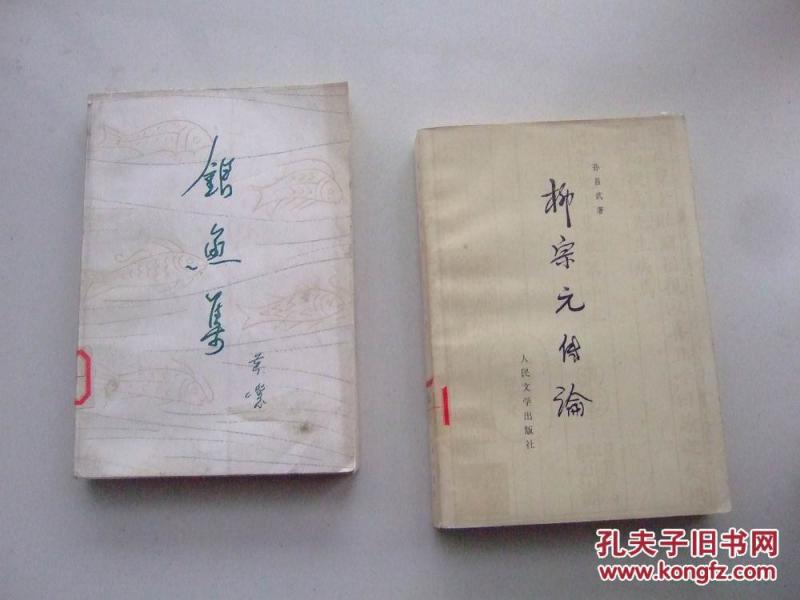 銀魚集
黄裳
孙昌武著
柳宗元传論
人民文学出版社
孔夫子旧书网
www.kongfz.com